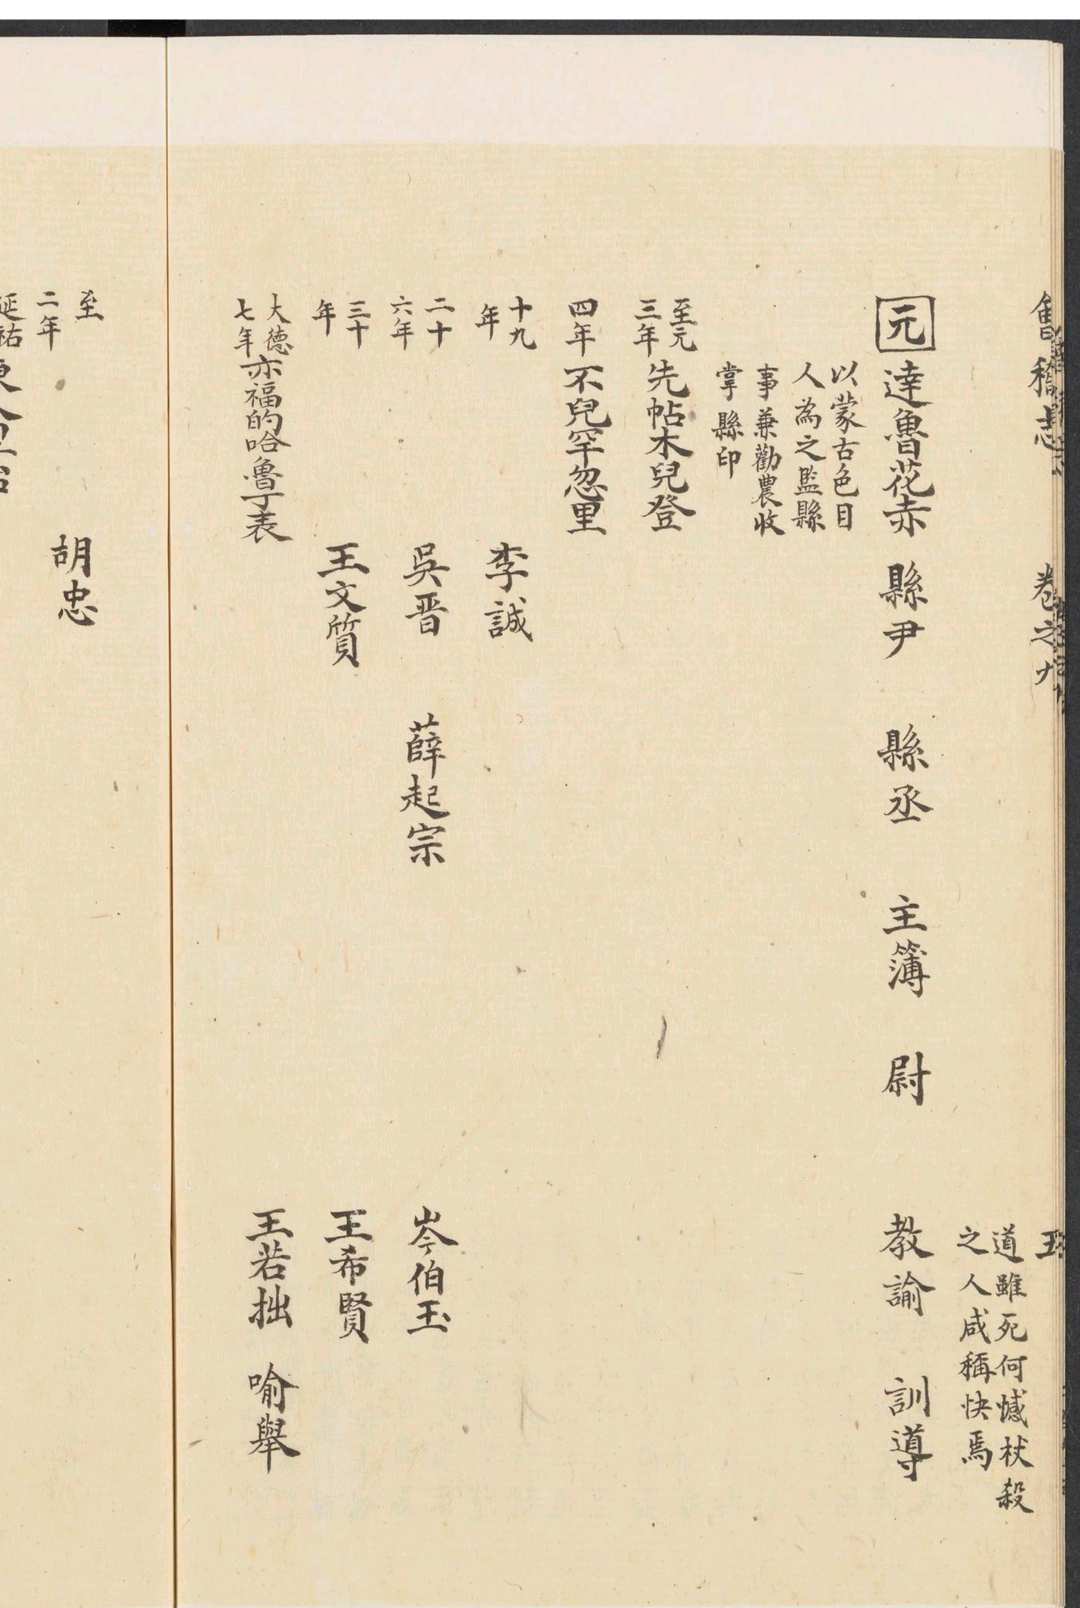 會稽志 卷之九
道雖死何憾杖殺
之人咸稱快焉
元 達魯花赤 縣尹 縣丞 主簿 尉 教諭 訓導
以蒙古色目
人為之監縣
事兼勸農收
掌縣印
至元
三年
先帖木兒登
四年 不兒罕忽里
十九
年
李誠
二十
六年
吳晋 薛起宗 岑伯玉
三十
年
王文質 王希賢
大德
七年
亦福的哈魯丁表 王若拙 喻舉
至
二年
胡忠
延祐